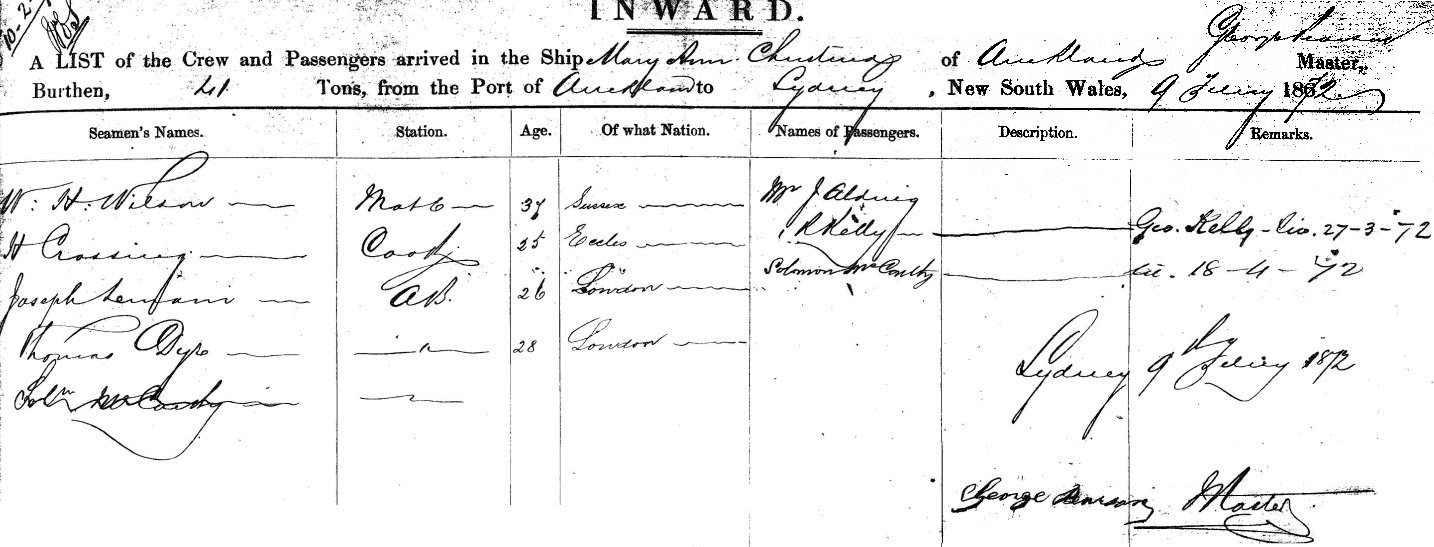 INWARD.
10-2-
A LIST of the Crew and Passengers arrived in the Ship Mary Ann Christina of Auckland George Pearson Master,
Burthen, 41 Tons, from the Port of Auckland to Sydney, New South Wales, 9 Feby 1872
Seamen's Names. Station. Age. Of what Nation. Names of Passengers. Description. Remarks.
W. H. Wilson Mate 37 Sussex Mr J Aldrig
H Crossing Cook 25 Eccles " R Kelly Geo. Kelly - 27-3-72
Joseph A.B. 26 London Solomon McCoulby 18-4-72
Thomas Dyke " 28 London
Soln McCoulby
Sydney 9th Feby 1872
George Pearson Master